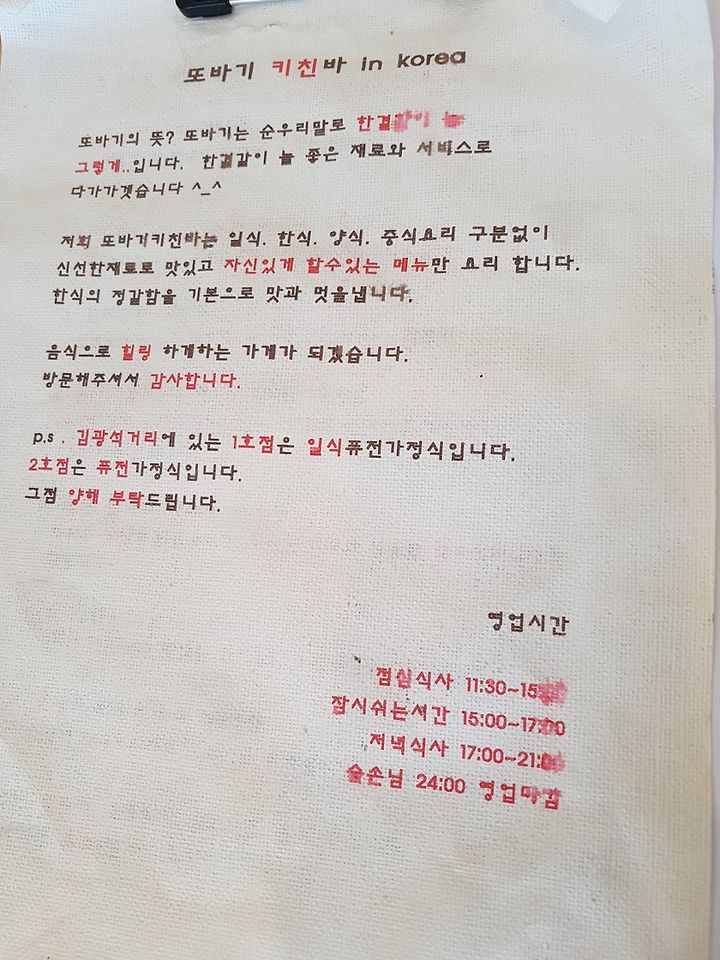 또바기 키친바 in korea
또바기의 뜻? 또바기는 순우리말로 한결같이 늘
그렇게..입니다. 한결같이 늘 좋은 재료와 서비스로
다가가겟습니다 ^_^
저희 또바기키친바는 일식. 한식. 양식. 중식요리 구분없이
신선한재료로 맛있고 자신있게 할수있는 메뉴만 요리 합니다.
한식의 정갈함을 기본으로 맛과 멋을냅니다.
음식으로 힐링 하게하는 가게가 되겠습니다.
방문해주셔서 감사합니다.
p.s . 김광석거리에 있는 1호점은 일식퓨전가정식입니다.
2호점은 퓨전가정식입니다.
그점 양해 부탁드립니다.
영업시간
점심식사 11:30~15:00
잠시쉬는시간 15:00~17:00
저녁식사 17:00~21:00
술손님 24:00 영업마감